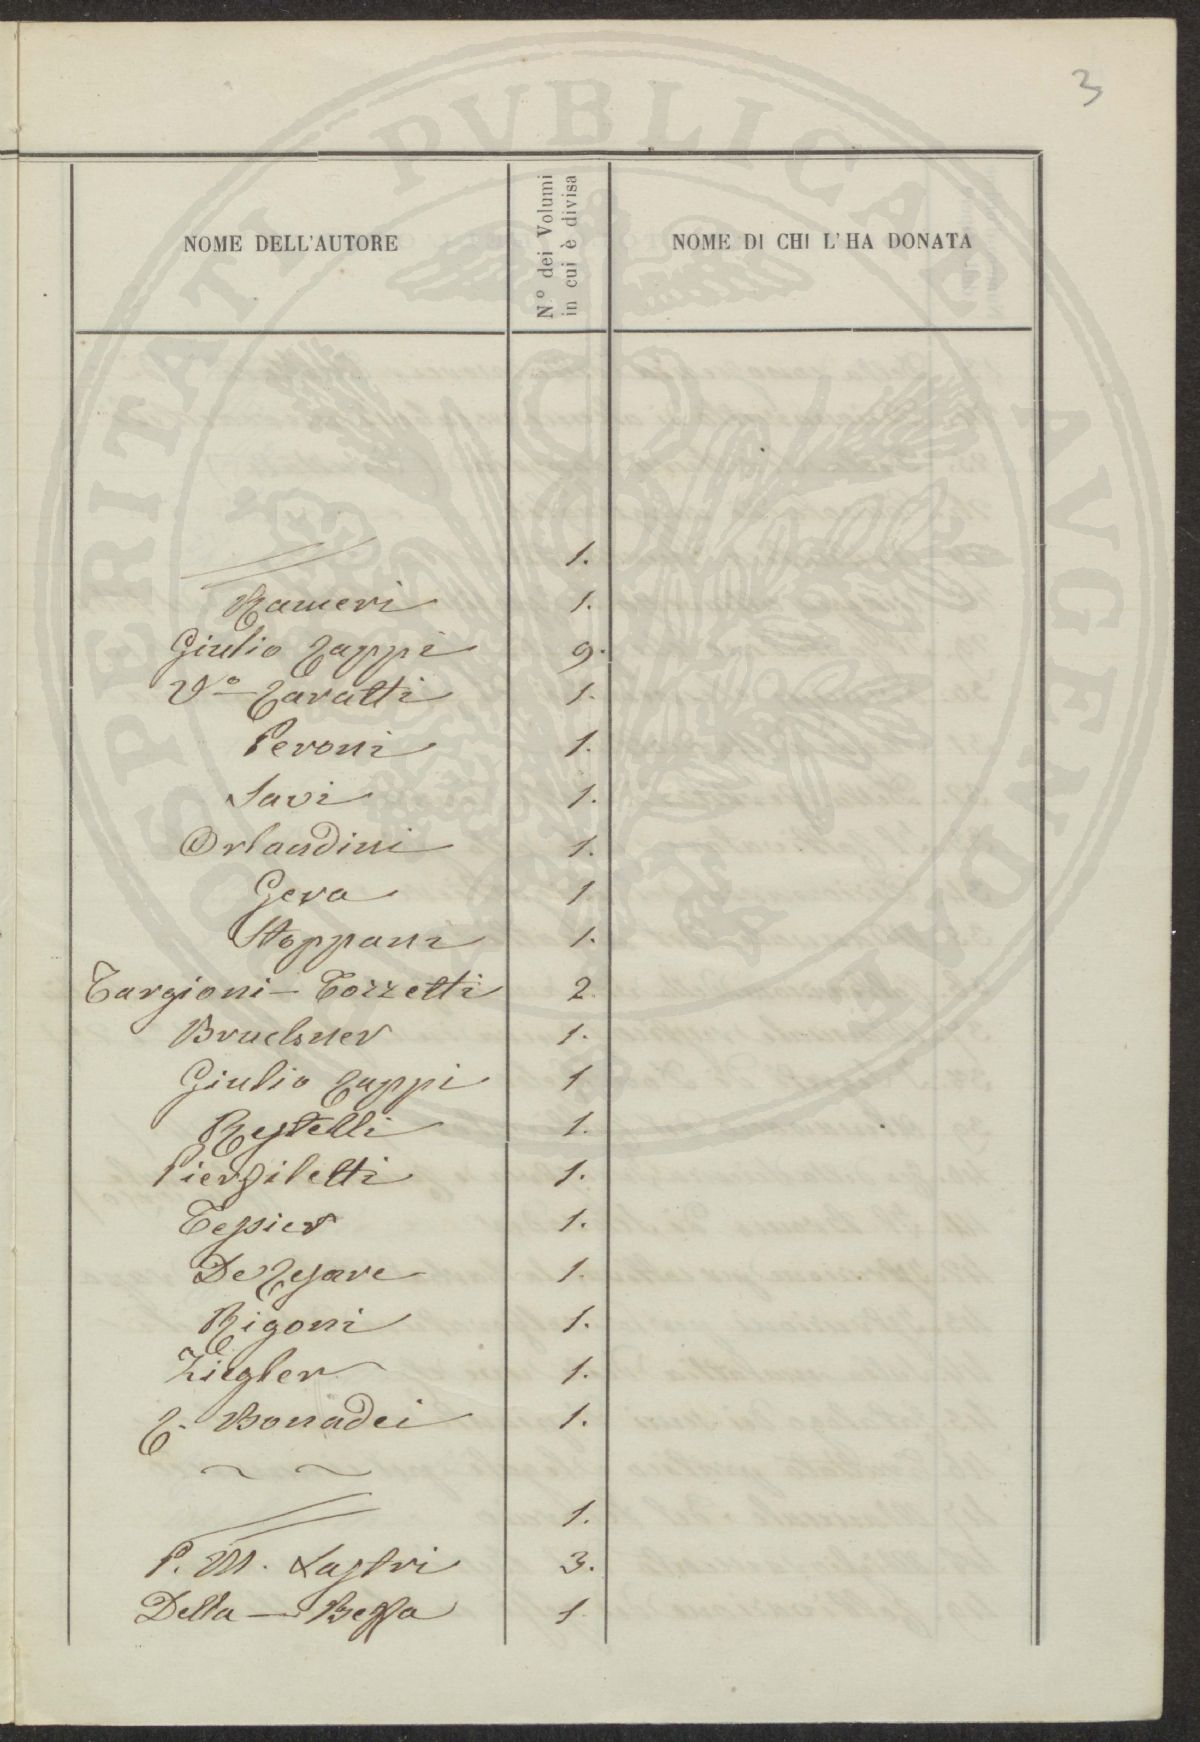 3
NOME DELL'AUTORE
N° dei Volumi
in cui è divisa
NOME DI CHI L'HA DONATA
1.
Rameri 1.
Giulio Cappi 9.
V° Caratti 1.
Peroni 1.
Savi 1.
Orlandini 1.
Gera 1
Stoppani 1.
Targioni-Tozzetti 2.
Bruchner 1.
Giulio Cappi 1
Restelli 1.
Piergiletti 1.
Tessier 1.
De Cesare 1.
Rigoni 1.
Ziegler 1.
C. Bonadei 1.
1.
P. M. Lastri 3.
Della-Beffa 1
PVBLICAE AVGENDAE
PROSPERITATI